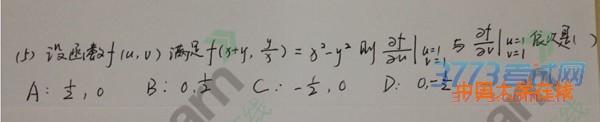 (5) 设函数f(u,v) 满足f(x+y, y/x) = x²-y² 则 ∂f/∂u|u=1 v=1 与 ∂f/∂v|u=1 v=1 依次是( )
A: 1/2, 0 B: 0, 1/2 C: -1/2, 0 D: 0, -1/2
3773考试网
中国大学在线